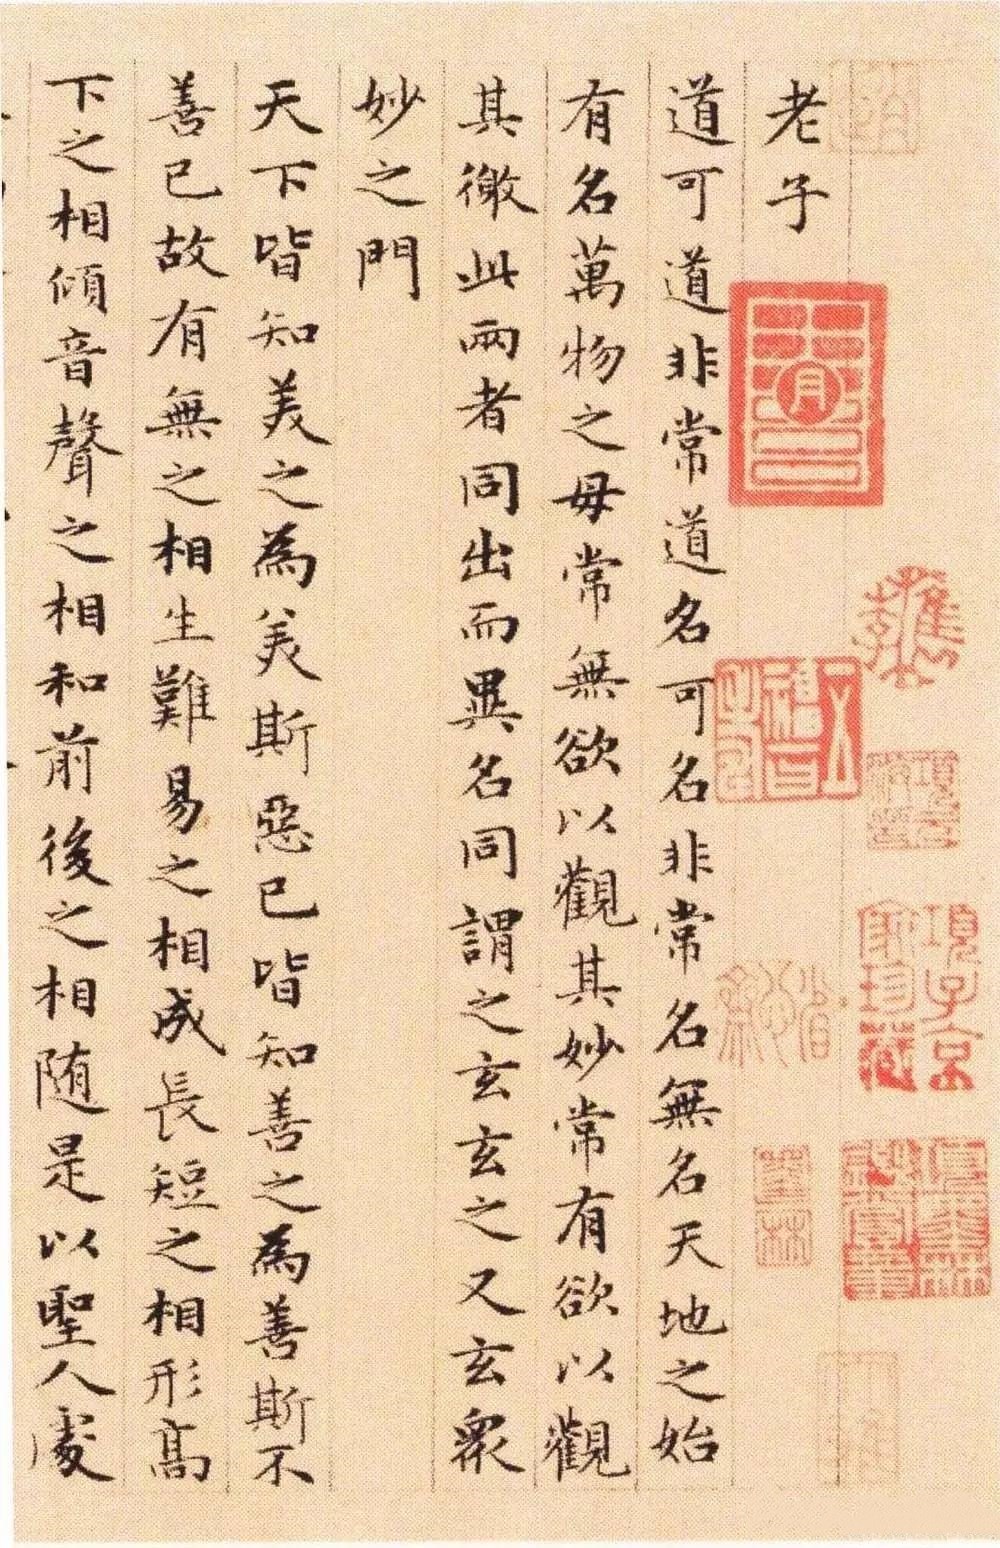 項子京
家珍藏
老子
道可道非常道名可名非常名無名天地之始
有名萬物之母常無欲以觀其妙常有欲以觀
其徼此兩者同出而異名同謂之玄玄之又玄衆
妙之門
天下皆知美之為美斯惡已皆知善之為善斯不
善已故有無之相生難易之相成長短之相形高
下之相傾音聲之相和前後之相随是以聖人處